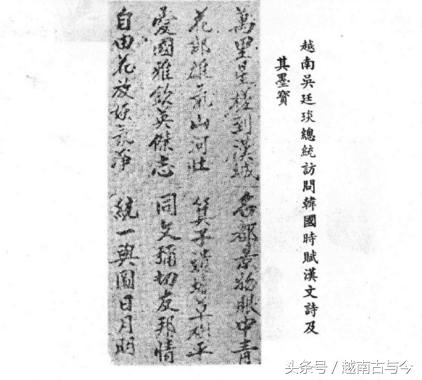 越南吳廷琰總統訪問韓國時賦漢文詩及
其墨寶
萬里星槎到漢城 名都景物眼中青
花郎雄氣山河壯 箕子遺墟草樹平
愛國雅欽英傑志 同文彌切友邦情
自由花放妖氛净 統一輿圖日月明
头条号 / 越南古与今